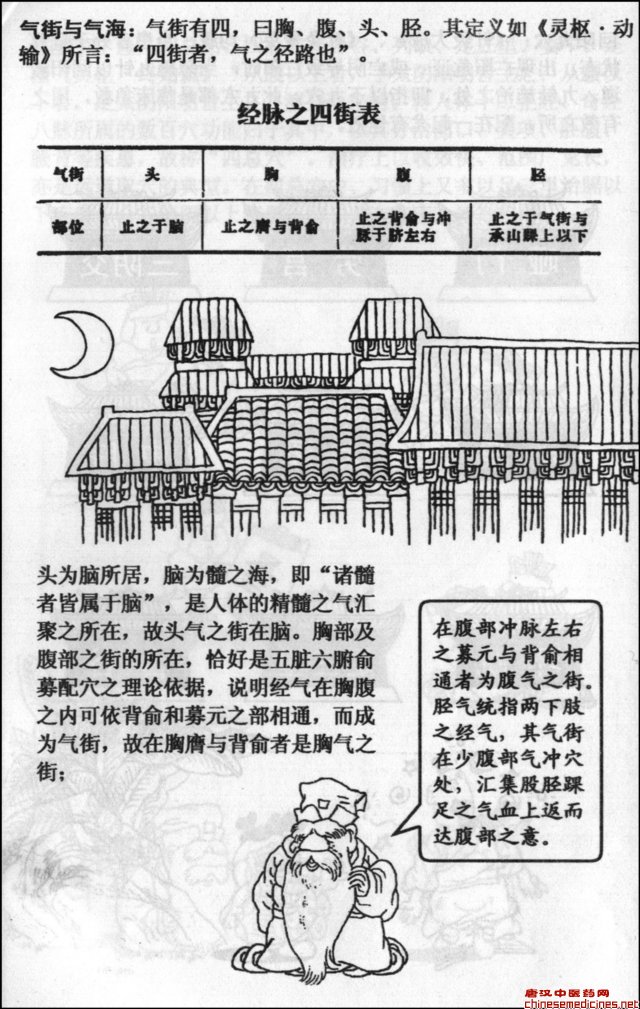 气街与气海：气街有四，曰胸、腹、头、胫。其定义如《灵枢·动
输》所言：“四街者，气之径路也”。
经脉之四街表
气街 头 胸 腹 胫
部位 止之于脑 止之膺与背俞 止之背俞与冲脉于脐左右 止之于气街与承山踝上以下
头为脑所居，脑为髓之海，即“诸髓
者皆属于脑”，是人体的精髓之气汇
聚之所在，故头气之街在脑。胸部及
腹部之街的所在，恰好是五脏六腑俞
募配穴之理论依据，说明经气在胸腹
之内可依背俞和募元之部相通，而成
为气街，故在胸膺与背俞者是胸气之
街；
在腹部冲脉左右
之募元与背俞相
通者为腹气之街。
胫气统指两下肢
之经气，其气街
在少腹部气冲穴
处，汇集股胫踝
足之气血上返而
达腹部之意。
唐汉中医药网
chinesemedicines.net